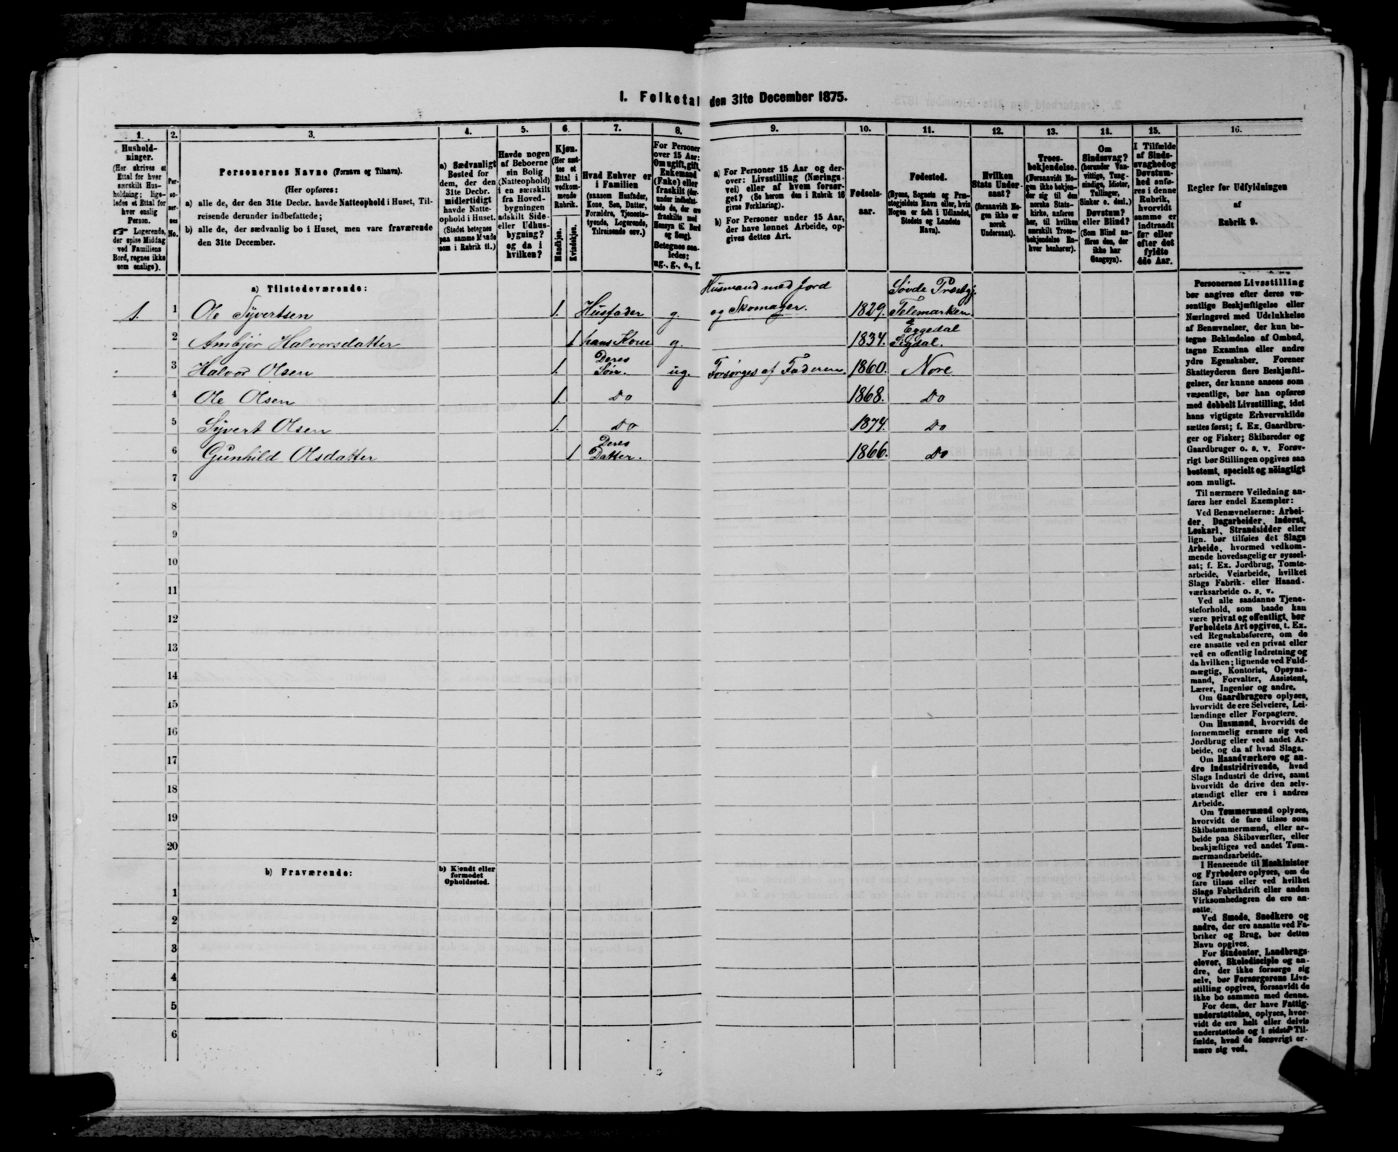 I. Folketal den 31te December 1875.
1. 2. 3. 4. 5. 6. 7. 8. 9. 10. 11. 12. 13. 14. 15. 16.
Husholdninger.
(Her skrives et
Ettal for hver
særskilt Husholdning;
ligeledes et Ettal for
hver enslig
Person.
☞ Logerende,
der spise Middag
ved Familiens
Bord, regnes ikke
som enslige).
Personernes No.
Personernes Navne (Fornavn og Tilnavn).
(Her opføres:
a) alle de, der den 31te Decbr. havde Natteophold i Huset, Tilreisende derunder indbefattede;
b) alle de, der sædvanlig bo i Huset, men vare fraværende
den 31te December.
a) Sædvanligt
Bosted for
dem, der den
31te Decbr.
midlertidigt
havde Natteophold i Huset.
(Stedet betegnes
paa samme Maade
som i Rubrik 11.)
Havde nogen
af Beboerne
sin Bolig
(Natteophold)
i en særskilt
fra Hovedbygningen
adskilt Side-
eller Udhusbygning?
og da i
hvilken?
Kjøn.
(Her sættes et
Ettal
vedkommende
Rubrik.
Mandkjøn.
Kvindekjøn.
Hvad Enhver er
i Familien
(saasom Husfader,
Kone, Søn, Datter,
Forældre, Tjenestetyende, Logerende,
Tilreisende osv.)
For Personer
over 15 Aar:
Om ugift, gift,
Enkemand
(Enke) eller
fraskilt
Betegnes saaledes:
ug., g., e., f.
a) For Personer 15 Aar og derover: Livsstilling (Næringsvei) eller af hvem forsørget? (Se herom den i Rubrik 16
givne Forklaring).
b) For Personer under 15 Aar,
der have lønnet Arbeide, opgives dettes Art.
Fødselsaar.
Fødested.
(Byens, Sognets og Præstegjeldets Navn eller, hvis
Nogen er født i Udlandet,
Stedets og Landets
Navn).
Hvilken
Stats Undersaat?
(forsaavidt Nogen ikke er
norsk
Undersaat).
Troesbekjendelse.
(Forsaavidt Nogen ikke bekjender sig til den
norske Statskirke, anføres
her, til hvilken
særskilt Troesbekjendelse Enhver henhører).
Om
Sindssvag?
(herunder Vanvittige, Tungsindige, Idioter,
Tullinger,
Sinker o. desl.)
Døvstum?
eller Blind?
(Som Blind anføres den, der
ikke har
Gangsyn).
I Tilfælde
af Sindssvaghed og
Døvstumhed anføres i denne
Rubrik,
hvorvidt
samme er
indtraadt
før eller
efter det
fyldte
4de Aar.
Regler for Udfyldningen
af
Rubrik 9.
a) Tilstedeværende:
Husmand med jord Søvde Præstgj.
1. 1 Ole Syvertsen 1. Husfader g. og Skomager. 1829. Telemarken
2 Ambjør Halvorsdatter 1 hans Kone g. 1834. Eggedal Sigdal.
3 Halvor Olsen 1 Deres Søn. ug. Forsørges af Faderen 1860. Nore
4 Ole Olsen 1. Do 1868. Do
5 Syvert Olsen 1. Do 1874. Do
6 Gunhild Olsdatter 1 Deres Datter. 1866. Do
7
8
9
10
11
12
13
14
15
16
17
18
19
20
b) Fraværende: b) Kjendt eller
formodet
Opholdssted.
1
2
3
4
5
6
Personernes Livsstilling
bør angives efter deres væsentlige Beskjæftigelse eller
Næringsvei med Udelukkelse
af Benævnelser, der kun betegne Beklædelse af Ombud,
tagne Examina eller andre
ydre Egenskaber. Forener
Skatteyderen flere Beskjæftigelser, der kunne ansees som
væsentlige, bør han opføres
med dobbelt Livsstilling, idet
hans vigtigste Erhvervskilde
sættes først; f. Ex. Gaardbruger og Fisker; Skibsreder og
Gaardbruger o. s. v. Forøvrigt bør Stillingen opgives saa
bestemt, specielt og nöiagtigt
som muligt.
Til nærmere Veiledning anføres her endel Exempler:
Ved Benævnelserne: Arbeider, Dagarbeider, Inderst,
Løskarl, Strandsidder eller
lign. bør tilføies det Slags
Arbeide, hvormed vedkommende hovedsagelig er sysselsat; f. Ex. Jordbrug, Tomtearbeide, Veiarbeide, hvilket
Slags Fabrik- eller Haandværksarbeide o. s. v.
Ved alle saadanne Tjenesteforhold, som baade kan
være privat og offentligt, bør
Forholdets Art opgives, t. Ex.
ved Regnskabsførere, om de
ere ansatte ved en privat eller
ved en offentlig Indretning og
da hvilken; lignende ved Fuldmægtig, Kontorist, Opsynsmand, Forvalter, Assistent,
Lærer, Ingeniør og andre.
Om Gaardbrugere oplyses,
hvorvidt de ere Selveiere, Leilændinge eller Forpagtere.
Om Husmænd, hvorvidt de
fornemmelig ernære sig ved
Jordbrug eller ved andet Arbeide, og da af hvad Slags.
Om Haandværkere og andre Industridrivende, hvad
Slags Industri de drive, samt
hvorvidt de drive den selvstændigt eller ere i andres
Arbeide.
Om Tømmermænd oplyses,
hvorvidt de fare tilsøs som
Skibstømmermænd, eller arbeide paa Skibsværfter, eller
beskjæftiges ved andet Tømmermandsarbeide.
I Henseende til Maskinister
og Fyrbødere oplyses, om de
fare tilsøs eller ved hvilket
Slags Fabrikdrift eller anden
Virksomhedsgren de ere ansatte.
Ved Smede, Snedkere og
andre, der ere ansatte ved Fabriker og Brug, bør dettes
Navn opgives.
For Studenter, Landbrugselever, Skoledisciple og andre, der ikke forsørge sig
selv, bør Forsørgerens Livsstilling opgives, forsaavidt de
ikke bo sammen med denne.
For dem, der have Fattigunderstøttelse, oplyses, hvorvidt de ere helt eller delvis
understøttede og i sidste Tilfælde, hvad de forøvrigt ernære sig ved.